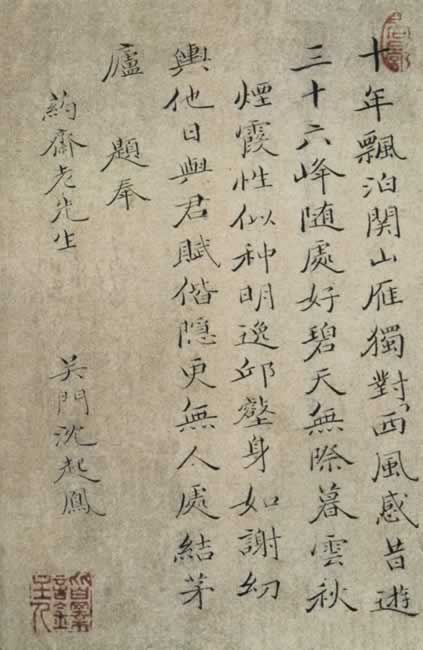 十年飄泊関山雁獨對西風感昔遊
三十六峰随處好碧天無際暮雲秋
煙霞性似种明逸邱壑身如謝幼
輿他日與君賦偕隱更無人處結茅
廬 題奉
約齋老先生
吴門沈起鳳